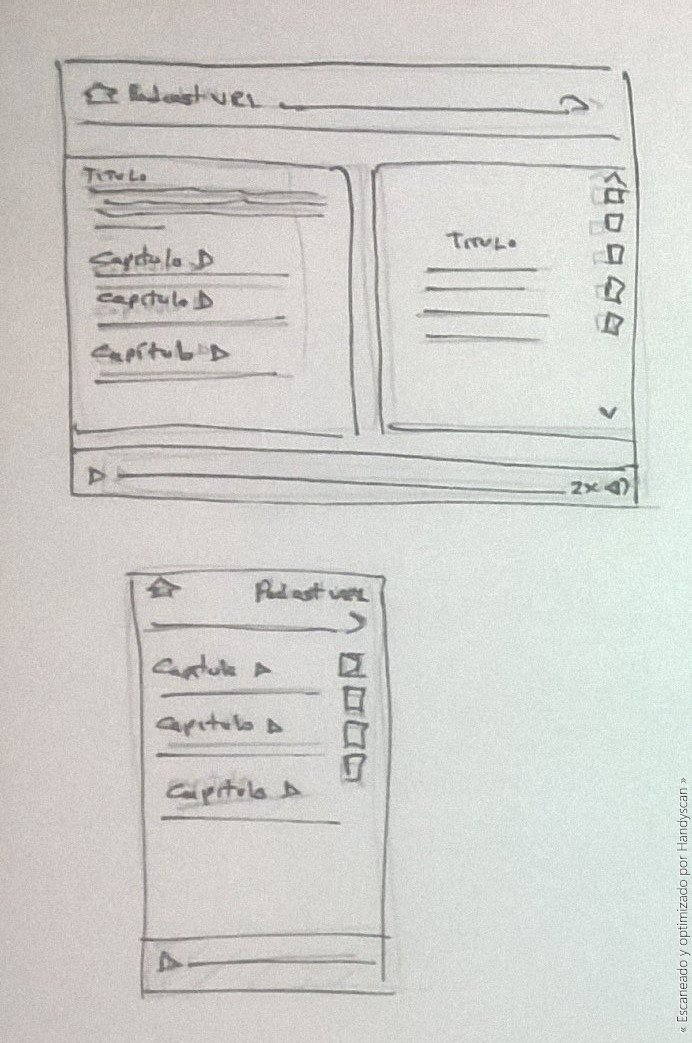 Podcast UPL
TITULO
Capitulo
Capitulo
Capítulo
TITULO
2x
Podcast UPL
Capitulo
Capitulo
Capitulo
« Escaneado y optimizado por Handyscan »